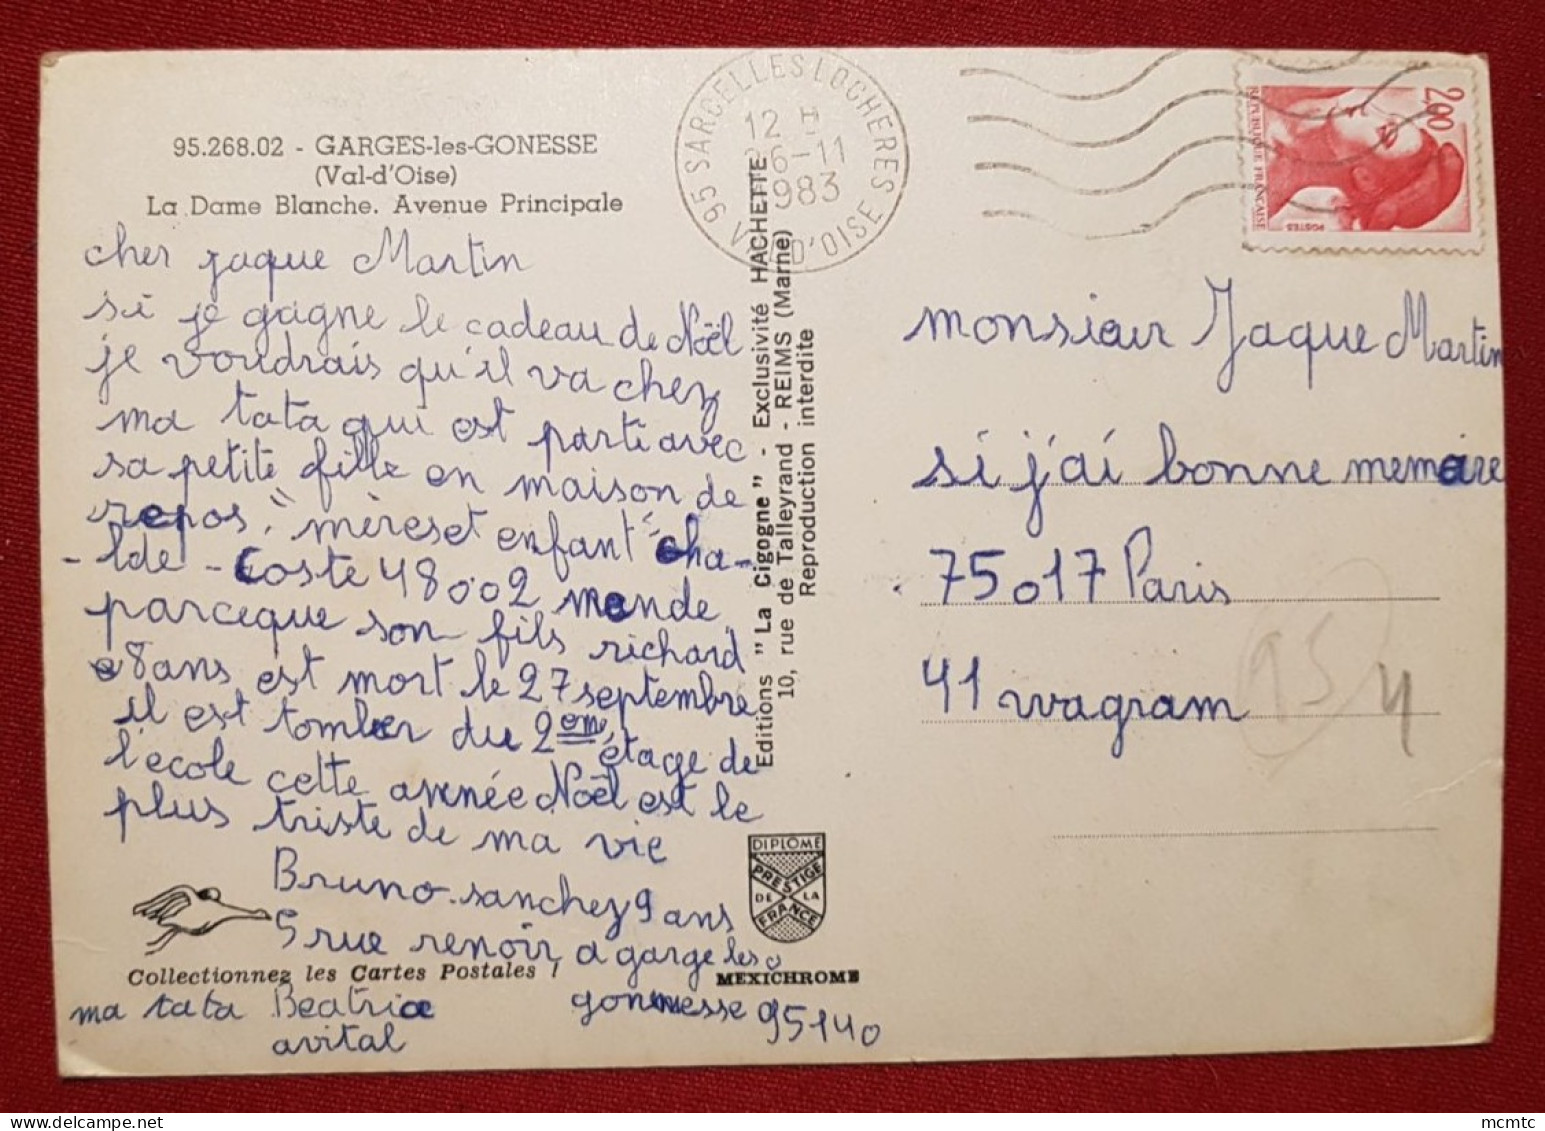 95.268.02 - GARGES-les-GONESSE
(Val-d'Oise)
La Dame Blanche. Avenue Principale
cher jaque Martin
si je gagne le cadeau de Noël
je voudrais qu'il va chez
ma tata qui est parti avec
sa petite fille en maison de
repos, "mèreset enfant" cha-
-lde - Coste 48002 mende
parceque son fils richard
8ans est mort le 27 septembre
il est tomber du 2eme étage de
l'école cette année Noël est le
plus triste de ma vie
Bruno sanchez 9 ans
5 rue renoir a garge les
gonnesse 95140
ma tata Beatrice
avital
Collectionnez les Cartes Postales !
Editions "La Cigogne" - Exclusivité HACHETTE
10, rue de Talleyrand - REIMS (Marne)
Reproduction interdite
DIPLOME
PRESTIGE
DE LA
FRANCE
MEXICHROME
95 SARCELLES LOCHERES
12 H
6-11
1983
VAL D'OISE
2,00
REPUBLIQUE FRANCAISE
POSTES
monsiaur Jaque Martin
si j'ai bonne memoire
75017 Paris
41 wagram
95 4
mcmtc